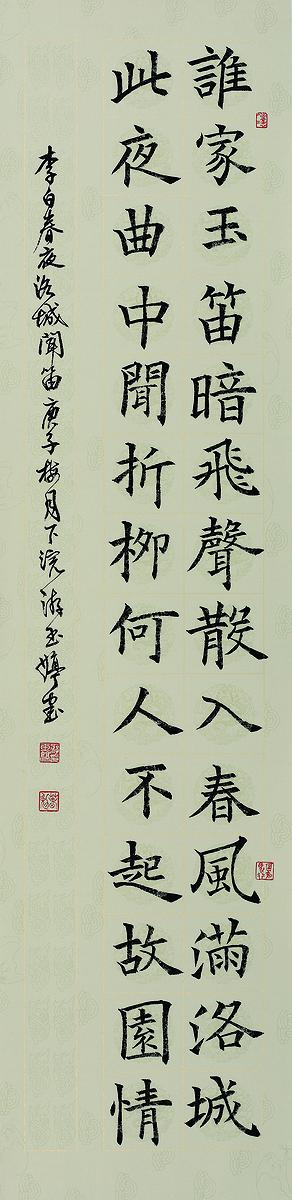 誰家玉笛暗飛聲散入春風滿洛城
此夜曲中聞折柳何人不起故園情
李白春夜洛城聞笛 庚子梅月下浣 游玉婷書